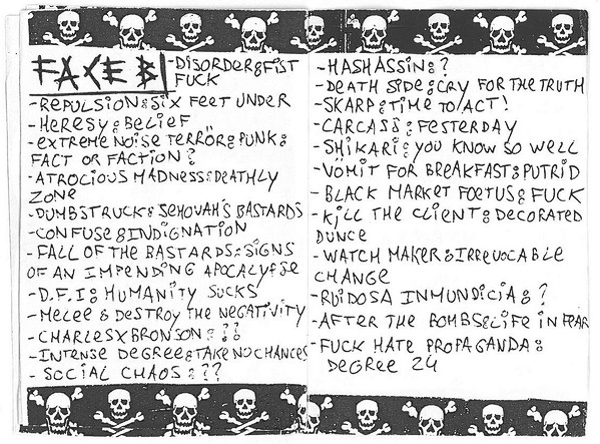 FACE B
-DISORDER:FIST
FUCK
-REPULSION:SIX FEET UNDER
-HERESY:BELIEF
-EXTREME NOISE TERROR:PUNK:
FACT OR FACTION?
-ATROCIOUS MADNESS:DEATHLY
ZONE
-DUMBSTRUCK:JEHOVAH'S BASTARDS
-CONFUSE:INDIGNATION
-FALL OF THE BASTARDS:SIGNS
OF AN IMPENDING APOCALYPSE
-D.F.I:HUMANITY SUCKS
-MELEE:DESTROY THE NEGATIVITY
-CHARLESXBRONSON:??
-INTENSE DEGREE:TAKE NO CHANCES
-SOCIAL CHAOS:???
-HASHASSIN:?
-DEATH SIDE:CRY FOR THE TRUTH
-SKARP:TIME TO ACT!
-CARCASS:FESTERDAY
-SHIKARI:YOU KNOW SO WELL
-VÖMIT FOR BREAKFAST:PUTRID
-BLACK MARKET FOETUS:FUCK
-KILL THE CLIENT:DECORATED
DUNCE
-WATCH MAKER:IRREVOCABLE
CHANGE
-RUIDOSA INMUNDICIA:?
-AFTER THE BOMBS:LIFE IN FEAR
-FUCK HATE PROPAGANDA:
DEGREE 24